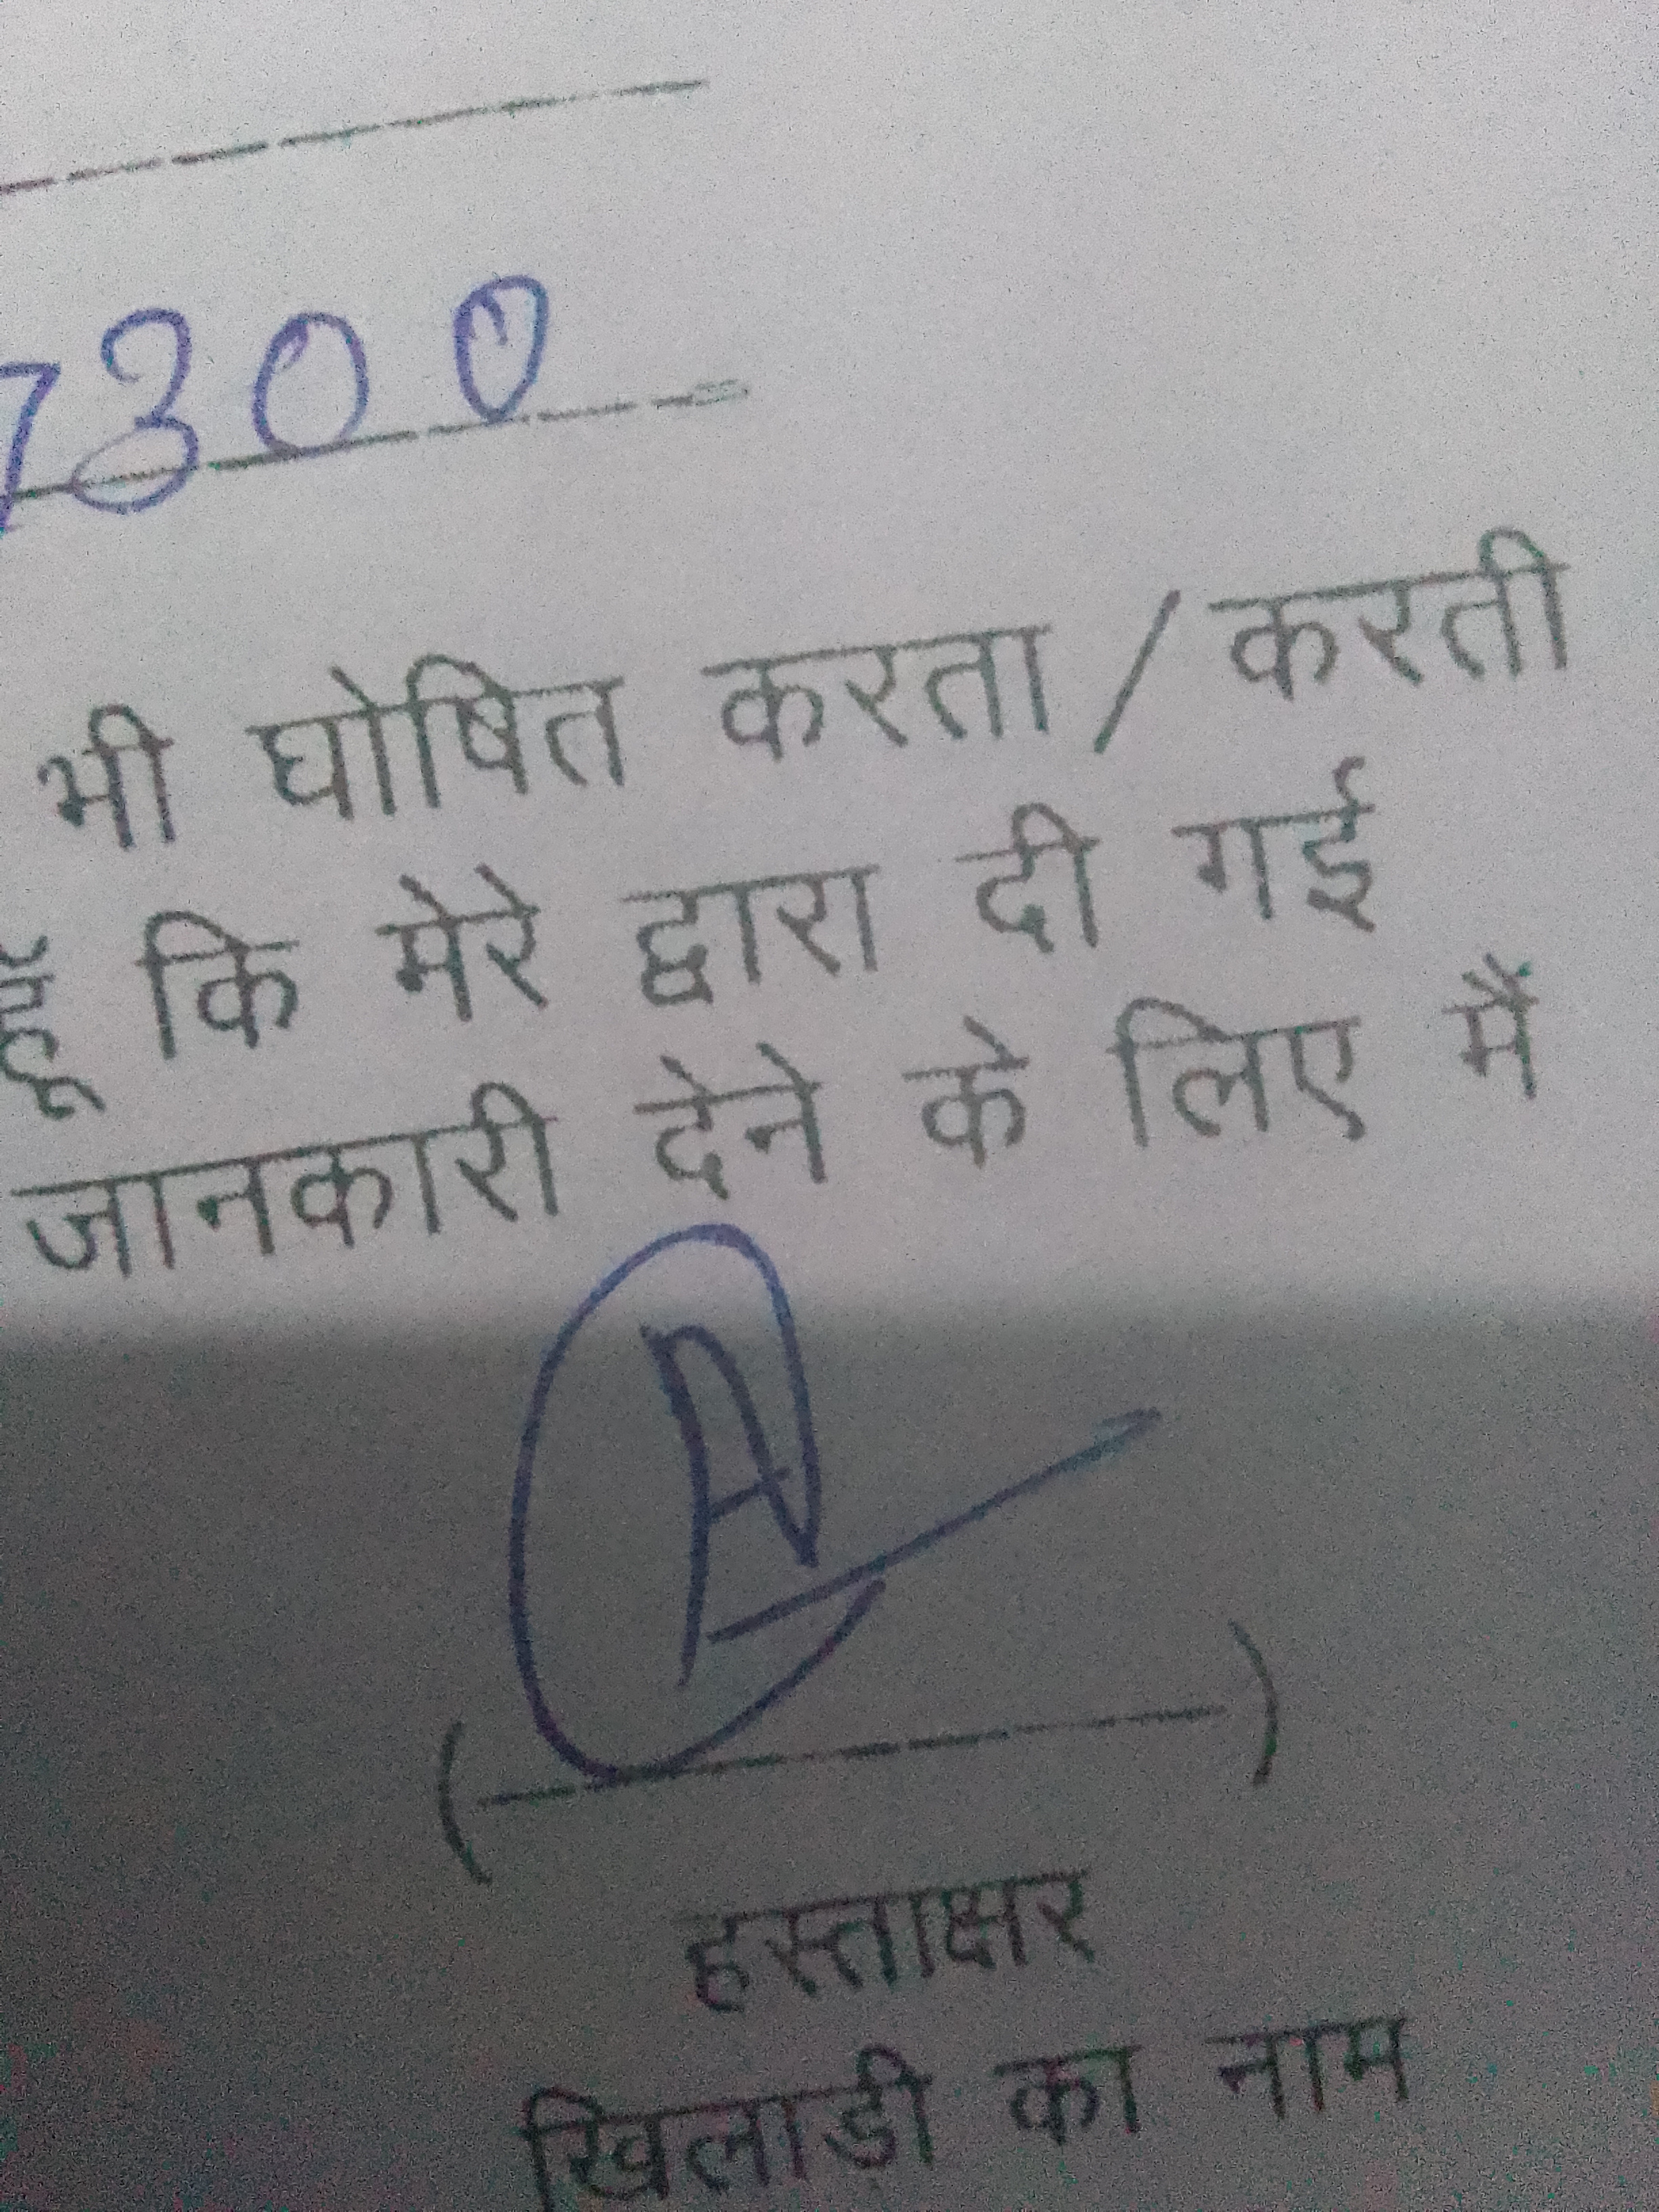 7300
भी घोषित करता / करती
हूँ कि मेरे द्वारा दी गई
जानकारी देने के लिए मैं
A
( )
हस्ताक्षर
खिलाड़ी का नाम